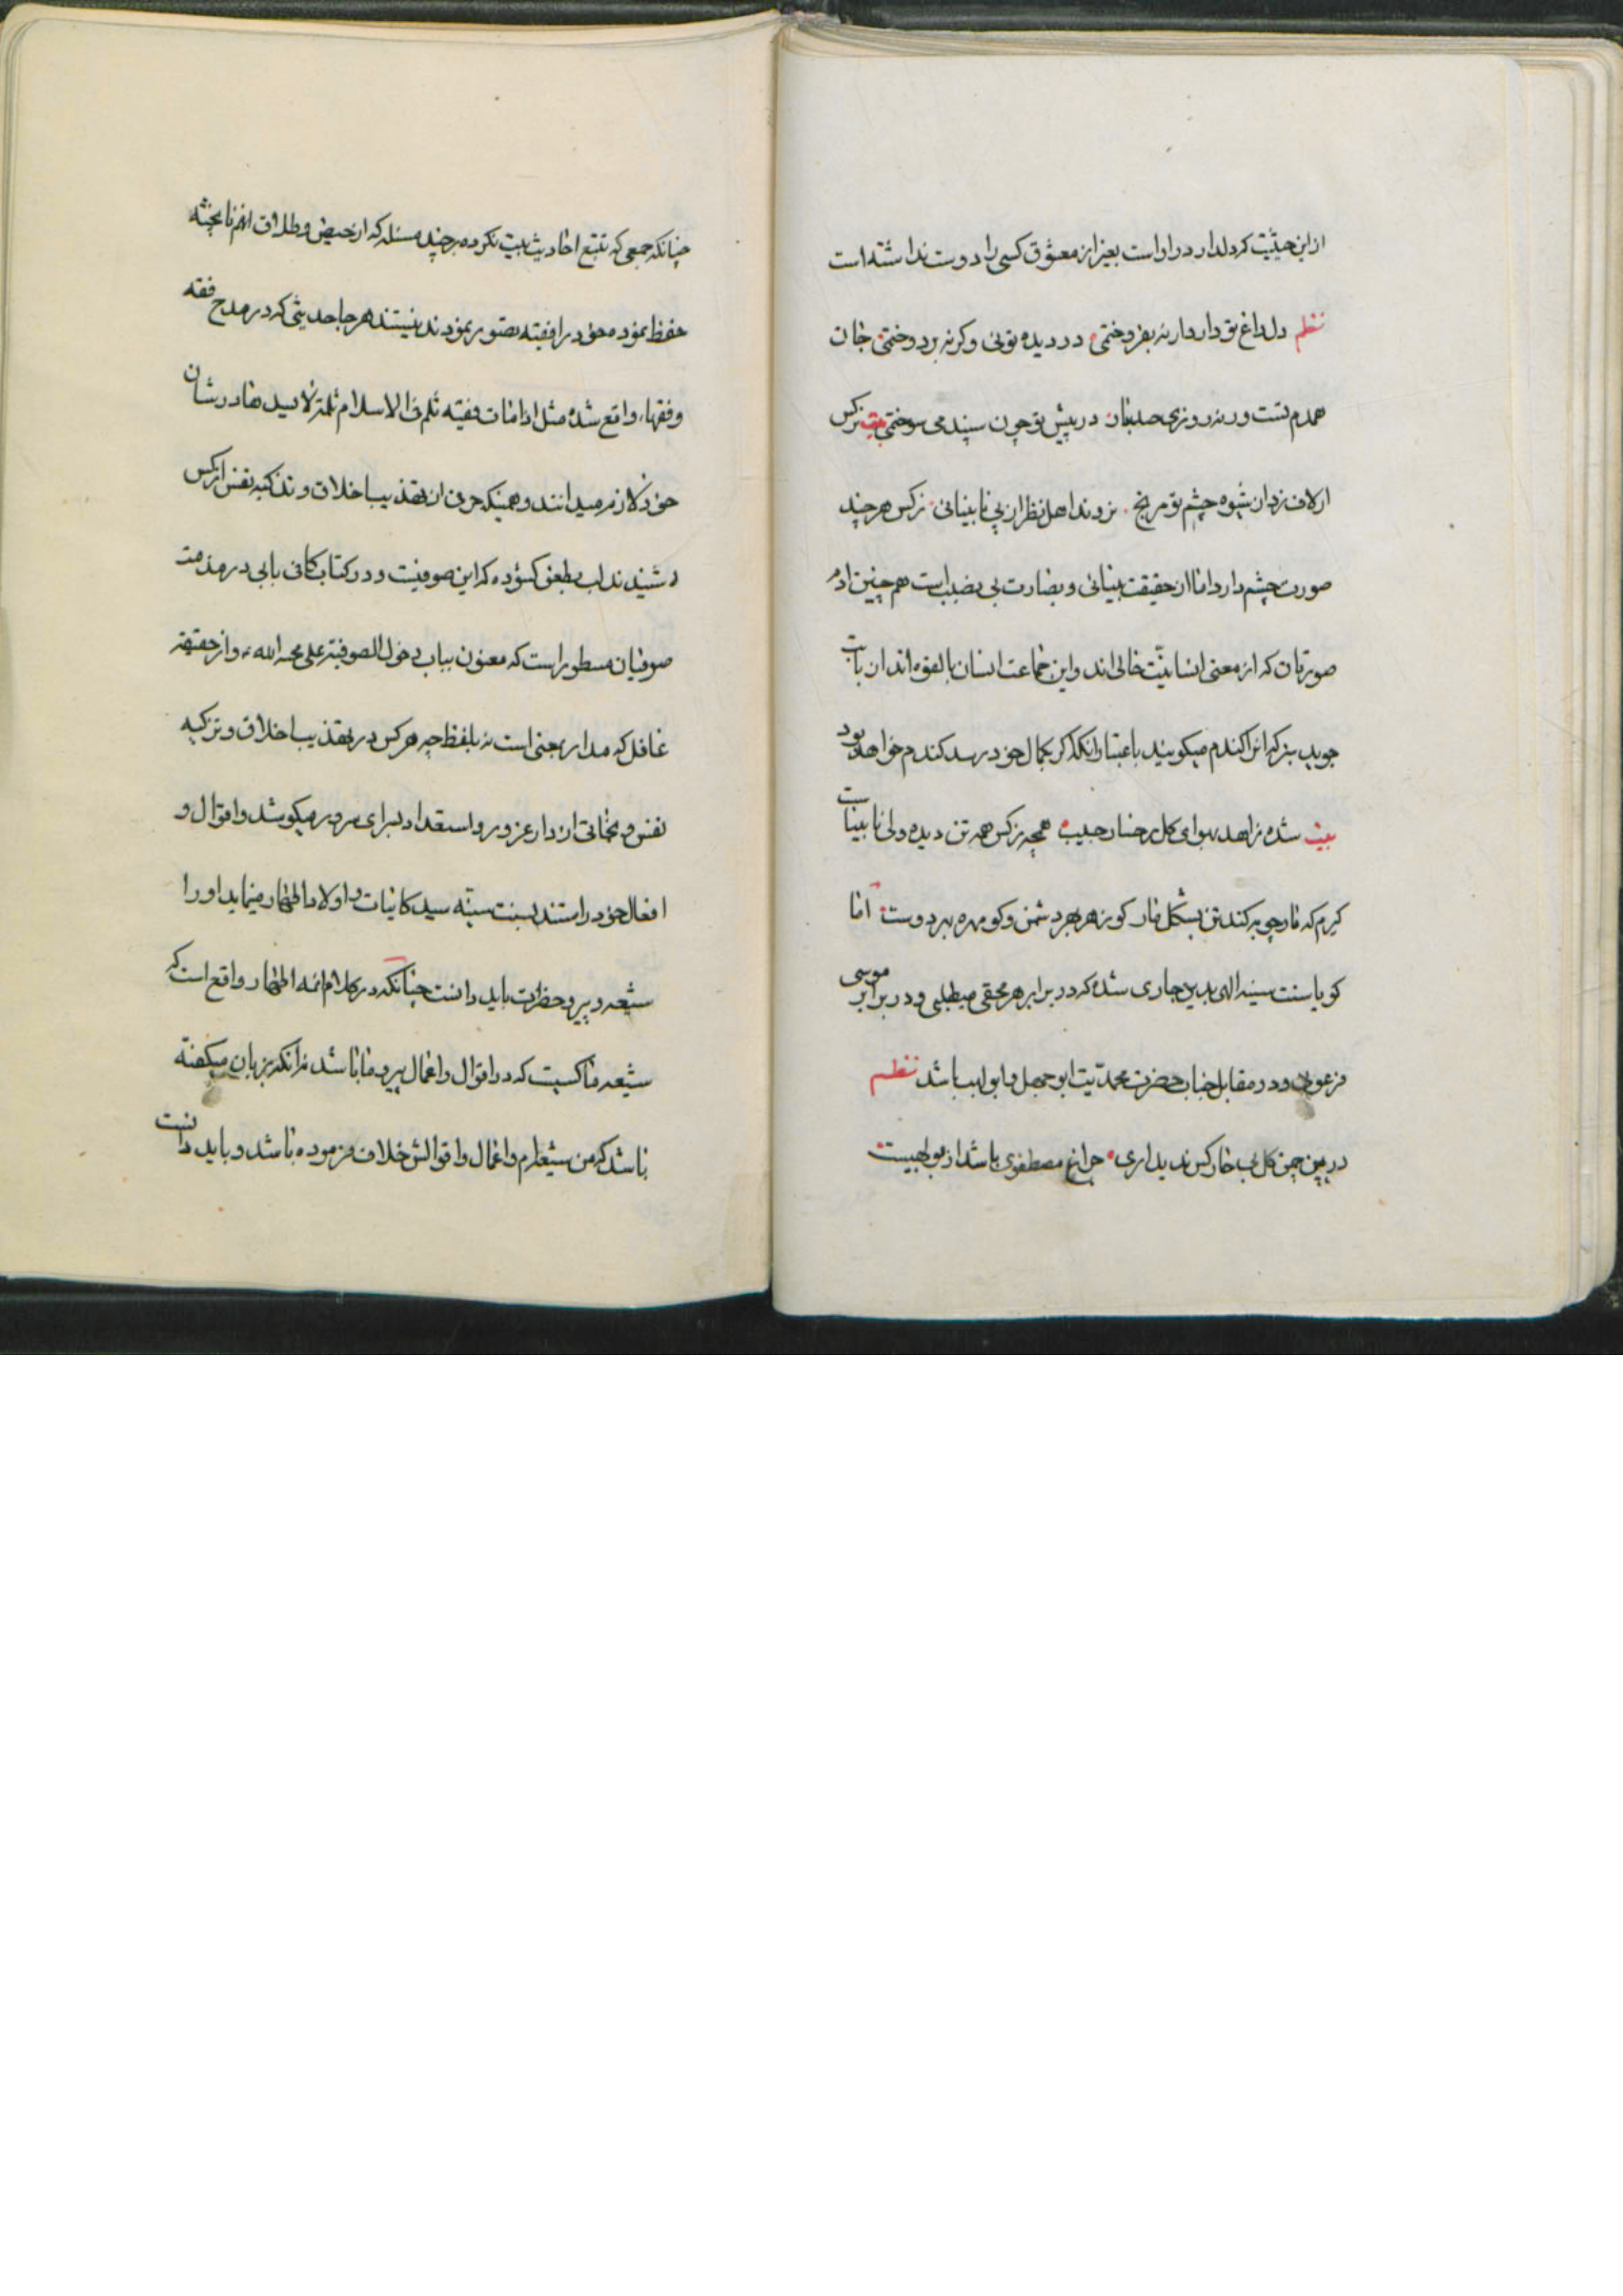 ازین حیثیت که دلدار در او است بغیر از معشوق کسی را دوست نداشته است
نظم دل داغ تو دارد ار نه بفروختمی در دیده توئی وکر نه بر دوختمی جان
همدم تست ور نه روزی صد بار در پیش تو چون سپند می سوختمی بیت نرکس
ار لاف زد از شیوه چشم تو مرنج نروند اهل نظر از پی نابینائی نرکس هر چند
صورت چشم دارد اما از حقیقت بینائی و بصارت بی نصیب است همچنین ادم
صورتان که از معنی انسانیّت خالی اند واین جماعت انسان بالقوه اند از بابت
جوب بزرکه انرا کندم میکویند باعتبار انکه اکر بکمال خود رسد کندم خواهد بود
بیت شده زاهد بهوای کل رخسار حبیب همچه نرکس همه تن دیده ولی نابیناست
کیرم که مار چوبه کند تن بشکل مار کو زهر بهر دشمن و کو مهره بهر دوست اما
کویا سنت سنیه الهی بدین جاری شده که در برابر هر محقی مبطلی و در برابر موسی
فرعونی و در مقابل جناب حضرت محمدیت ابوجهل و ابولهب باشد نظم
درین چمن کل بی خار کس ندید اری چراغ مصطفوی باشد از بولهبیست
چنانکه جمعی که تتبع احادیث بیت نکرده بر چند مسئله که از حیض و طلاق انهم نا پخته
حفظ نموده خود را فقیه تصور نمودند نیستند هر جا حدیثی که در مدح فقه
و فقهاء واقع شده مثل اذا مات فقیه ثلم فی الاسلام ثلمة لا یسدها در شان
خود لازم میدانند و همینکه حرفی از تهذیب اخلاق و تذکیه نفس از کس
شنیدند لب بطعن کشوده که این صوفیست و در کتاب کافی بابی در مذمت
صوفیان مسطور است که معنون بباب دخول الصوفیة علی عبد الله ع و از حقیقة
غافل که مدار بمعنی است نه بلفظ چه هر کس در تهذیب اخلاق و تزکیه
نفس و تجافی از دار غرور و استعداد برای سرور میکوشد و اقوال و
افعال خود را مستند بسنت سنیّه سید کاینات و اولاد اطهار مینماید او را
شیعه و پیرو حضرت باید دانست چنانکه در کلام ائمه اطهار واقع است که
شیعه ما کسیست که در اقوال و اعمال پیرو ما باشد نه انکه بزبان میکفته
باشد که من شیعه ام و اعمال و اقوالش خلاف فرموده باشد و باید دانست